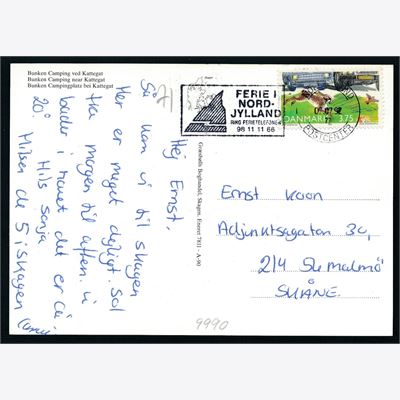 Bunken Camping ved Kattegat
Bunken Camping near Kattegat
Bunken Campingplatz bei Kattegat
Hej Ernst,
Så kom vi til skagen
Her er meget dejligt. Sol
fra morgen til aften. vi
bader i havet det er ca
20°. Hils Sonja
Hilsen de 5 i skagen
Grønholts Boghandel, Skagen. Eneret 7811 - A-90
FERIE I
NORD-
JYLLAND
RING FERIETELEFONEN
98 11 11 66
POSTCENTER
DANMARK 3.75
Ernst Koon
Adjunktsgatan 3c,
214 Malmö
SKÅNE.
9990